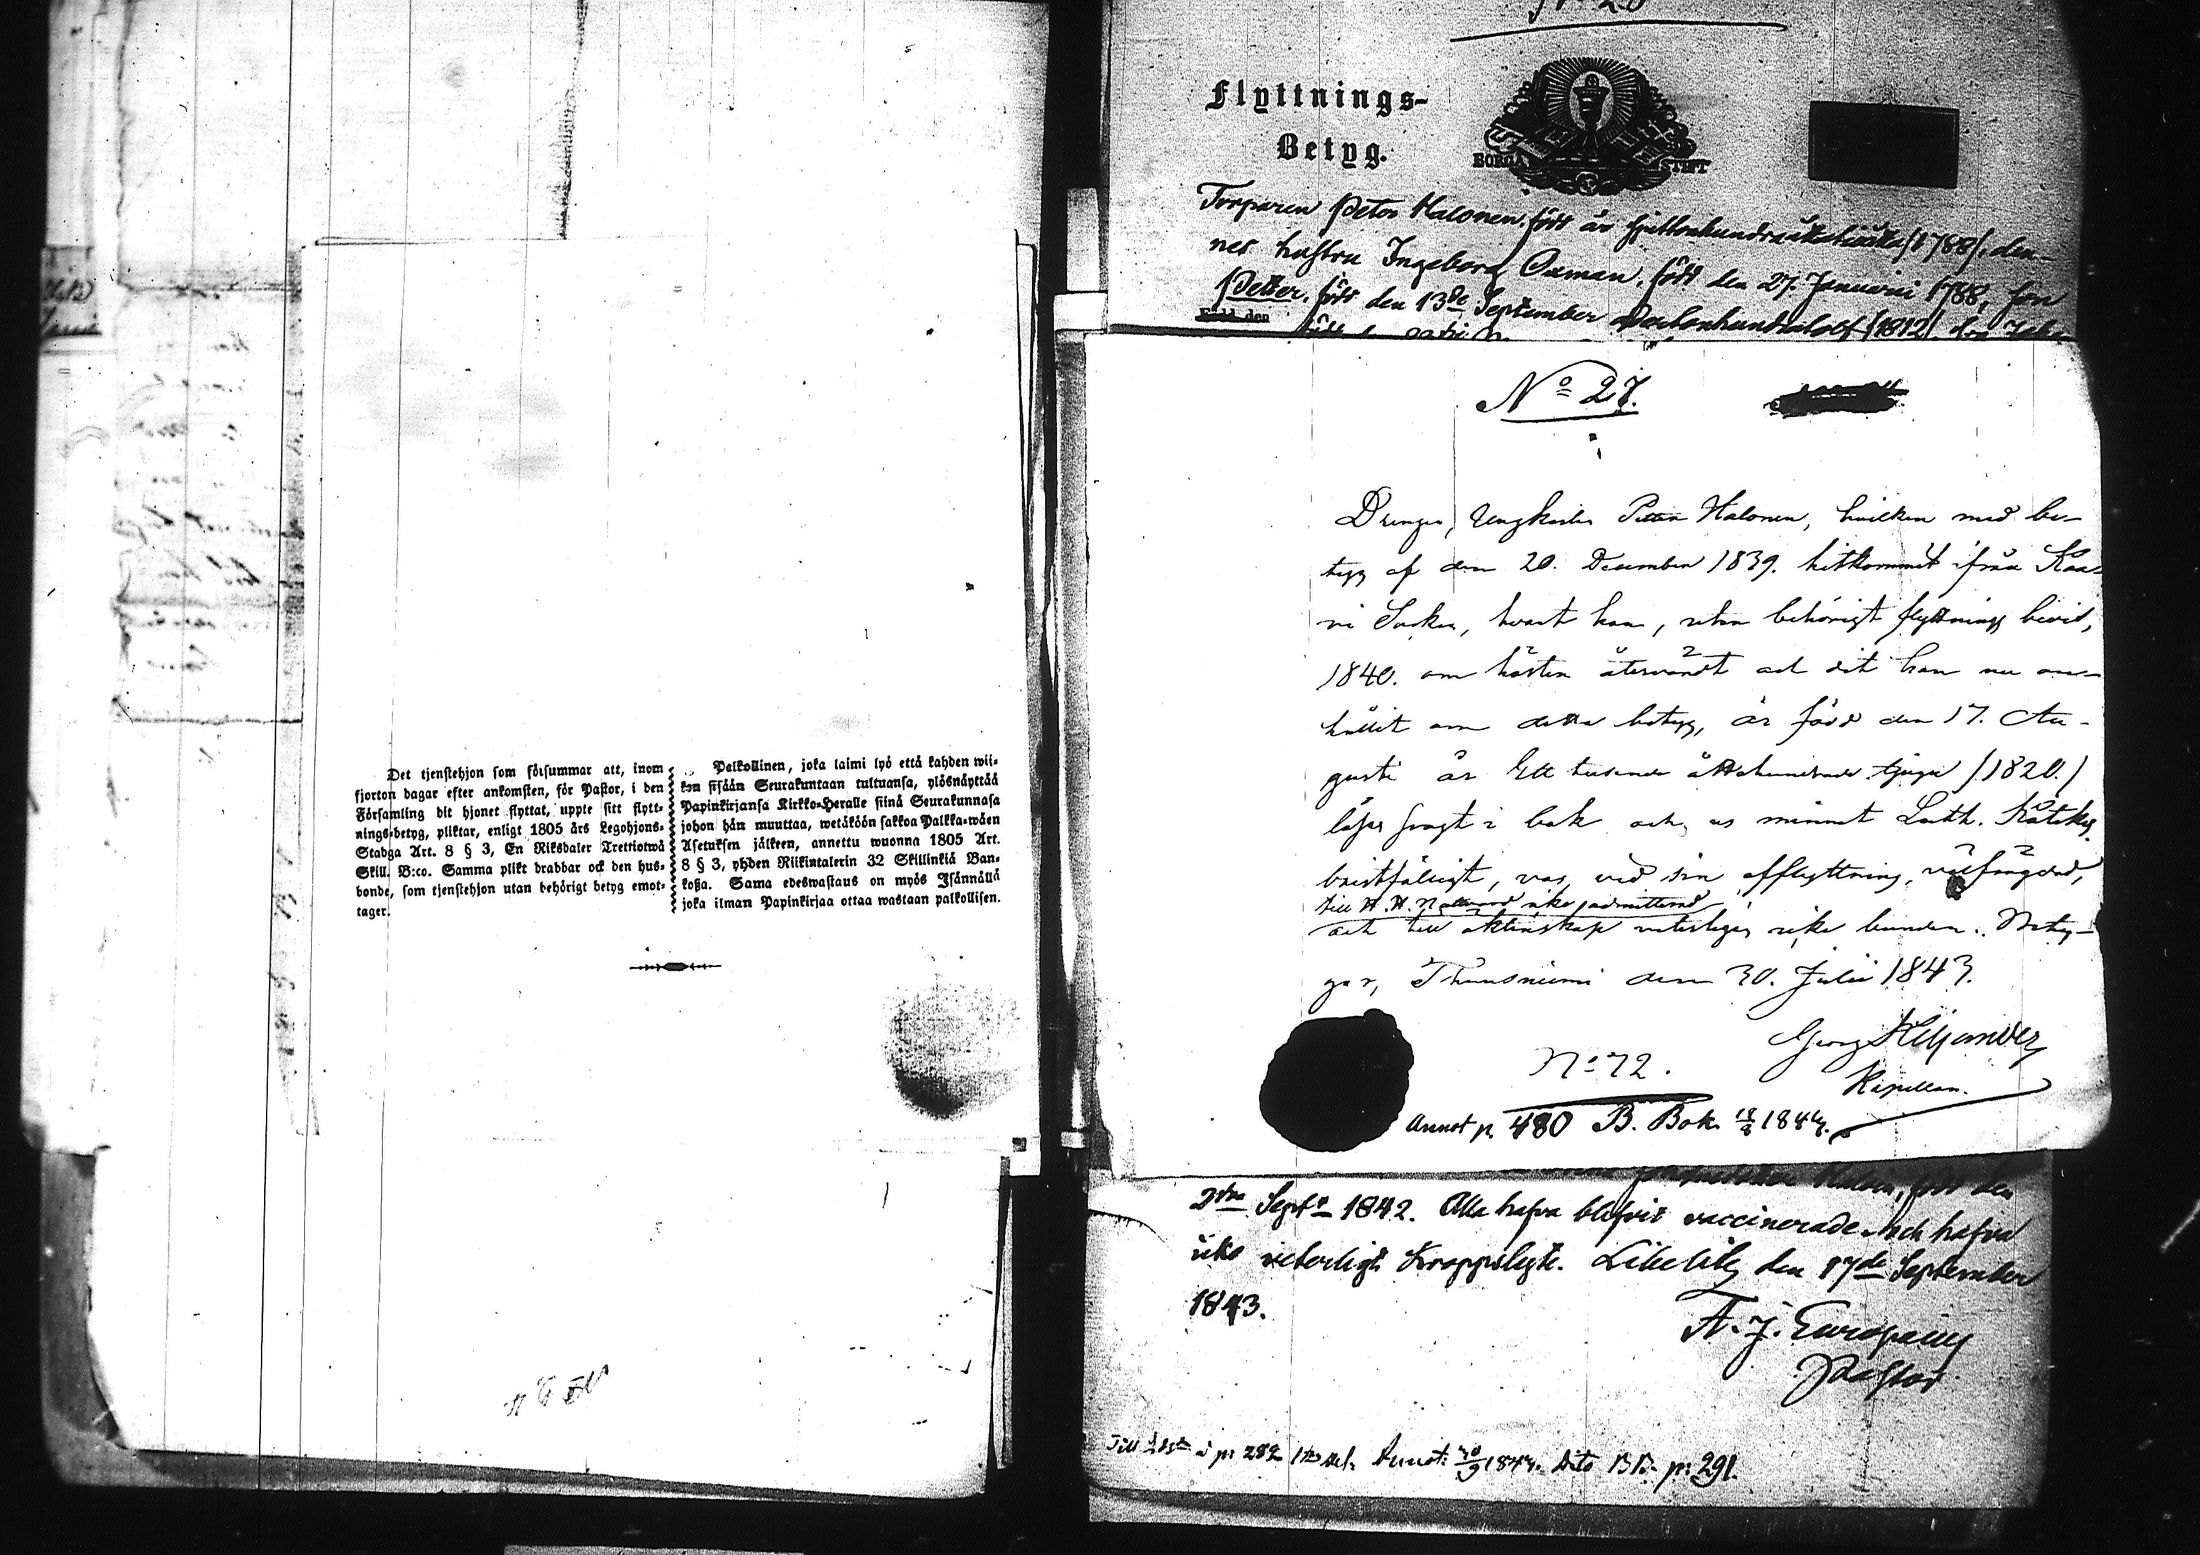 Det tjenstehjon som försummar att, inom
fjorton dagar efter ankomsten, för Pastor, i den
Församling dit hjonet flyttat, uppte sitt flytt-
nings-betyg, pliktar, enligt 1805 års Legohjons-
Stadga Art. 8 § 3, En Riksdaler Trettiotwå
Skill. B:co. Samma plikt drabbar ock den hus-
bonde, som tjenstehjon utan behörigt betyg emot-
tager.
Palkollinen, joka laimi lyö että kahden wii-
kon sisään Seurakuntaan tultuansa, ylösnäyttää
Papinkirjansa Kirkko-Heralle siinä Seurakunnasa
johon hän muuttaa, wetäköön sakkoa Palkka-wäen
Asetuksen jälkeen, annettu wuonna 1805 Art.
8 § 3, yhden Riikintalerin 32 Skillinkiä Ban-
koßa. Sama edeswastaus on myös Isännällä
joka ilman Papinkirjaa ottaa wastaan palkollisen.
Flyttnings-
Betyg.
BORGÅ STIFT
Torparen Petter Halonen, född år sjuttonhundraåttioåtta (1788), den-
nes hustru Ingeborg Oxman, född den 27. Januarii 1788, son
Petter, född den 13de September Adertonhundratolf (1812),
Född den
No 27.
Drengen, Ungkarlen Petter Halonen, hvilken med be-
tyg af den 20. December 1839. hitkommit ifrån Kaa-
vi Socken, hvart han, utan behörigt flyttnings bevis,
1840. om hösten återvändt och dit han nu an-
hållit om detta betyg, är född den 17. Au-
gusti år Ett tusende åttahundrade tjugu (1820.)
läser svagt i bok och ur minnet Luth. Katekes
bristfälligt, var, vid sin afflyttning, välfrägdad,
till H. H. Nattvard icke admitterad
och till äktenskap veterligen icke bunden. Bety-
gar, Thuusniemi den 30. Julii 1843.
Georg Kiljander
Kapellan.
No 72.
Annot p. 480 B. Bok. 18/8 1844.
2dra Septr 1842. Alla hafva blifvit vaccinerade och hafva
icke veterligt kroppslyte. Libelits den 17de September
1843.
A. J. Europaeus
Pastor
p: 282 Annot: 30/9 1844. Dito BB. p: 291.